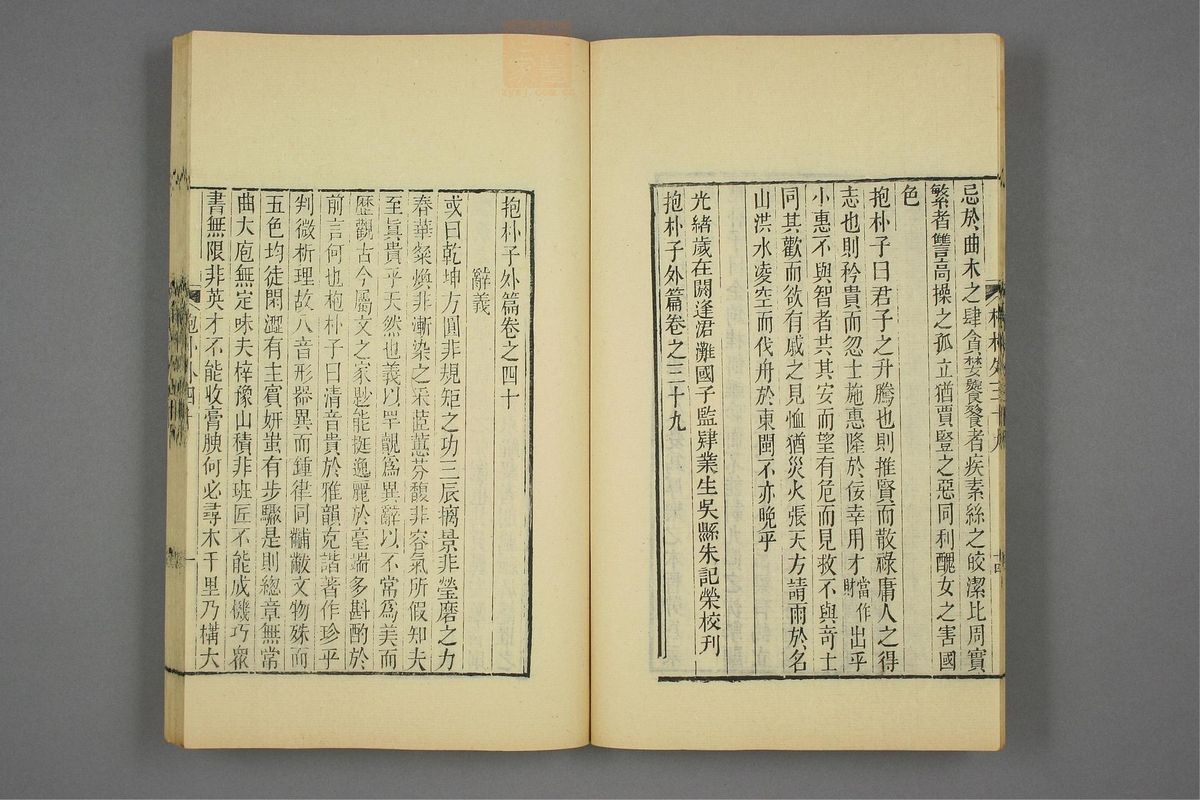 忌於曲木之肆貪婪饕餮者疾素絲之皎潔比周實
繁者讐高操之孤立猶賈豎之惡同利醜女之害國
色
抱朴子曰君子之升騰也則推賢而散祿庸人之得
志也則矜貴而忽士施惠隆於佞幸用才當作財出乎
小惠不與智者共其安而望有危而見救不與奇士
同其歡而欲有戚之見恤猶災火張天方請雨於名
山洪水凌空而伐舟於東閩不亦晚乎
光緒歲在閼逢涒灘國子監肄業生吳縣朱記榮校刊
抱朴子外篇卷之三十九
抱朴子外篇卷之四十
辭義
或曰乾坤方圓非規矩之功三辰摛景非瑩磨之力
春華粲煥非漸染之采茝蕙芬馥非容氣所假知夫
至眞貴乎天然也義以罕覿爲異辭以不常爲美而
歷觀古今屬文之家尠能挺逸麗於毫端多斟酌於
前言何也抱朴子曰清音貴於雅韻克諧著作珍乎
判微析理故八音形器異而鍾律同黼黻文物殊而
五色均徒閑澀有主賓妍蚩有步驟是則總章無常
曲大庖無定味夫梓豫山積非班匠不能成機巧衆
書無限非英才不能收膏腴何必尋木千里乃構大